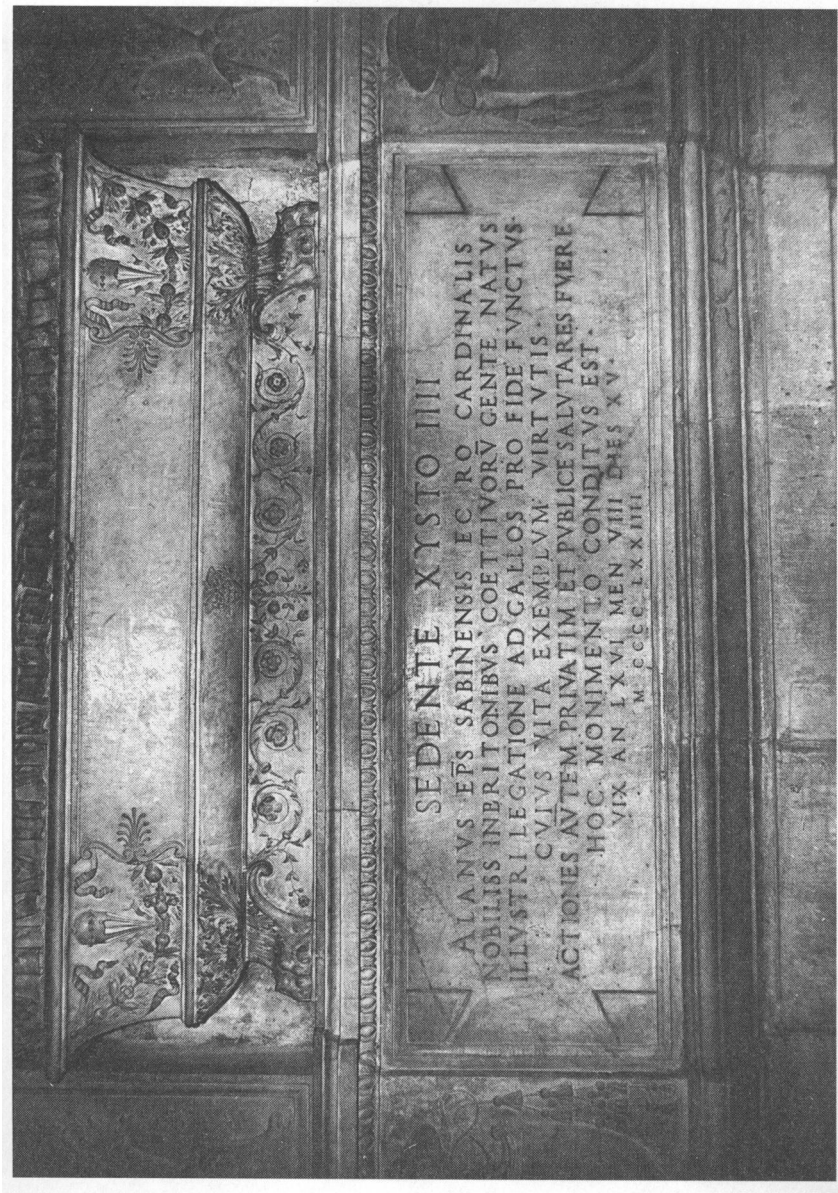 SEDENTE XYSTO IIII
ALANVS EP̄S SABINENSIS EC RO CARDINALIS
NOBILISS INBRITONIBVS COETTIVORV̄ GENTE NATVS
ILLVSTRI LEGATIONE AD GALLOS PRO FIDE FVNCTVS·
CVIVS VITA EXEMPLVM VIRTVTIS·
ACTIONES AVTEM PRIVATIM ET PVBLICE SALVTARES FVERE
HOC· MONIMENTO CONDITVS EST·
VIX AN LXVI MEN VIII DIES XV·
M CCCC LXXIIII